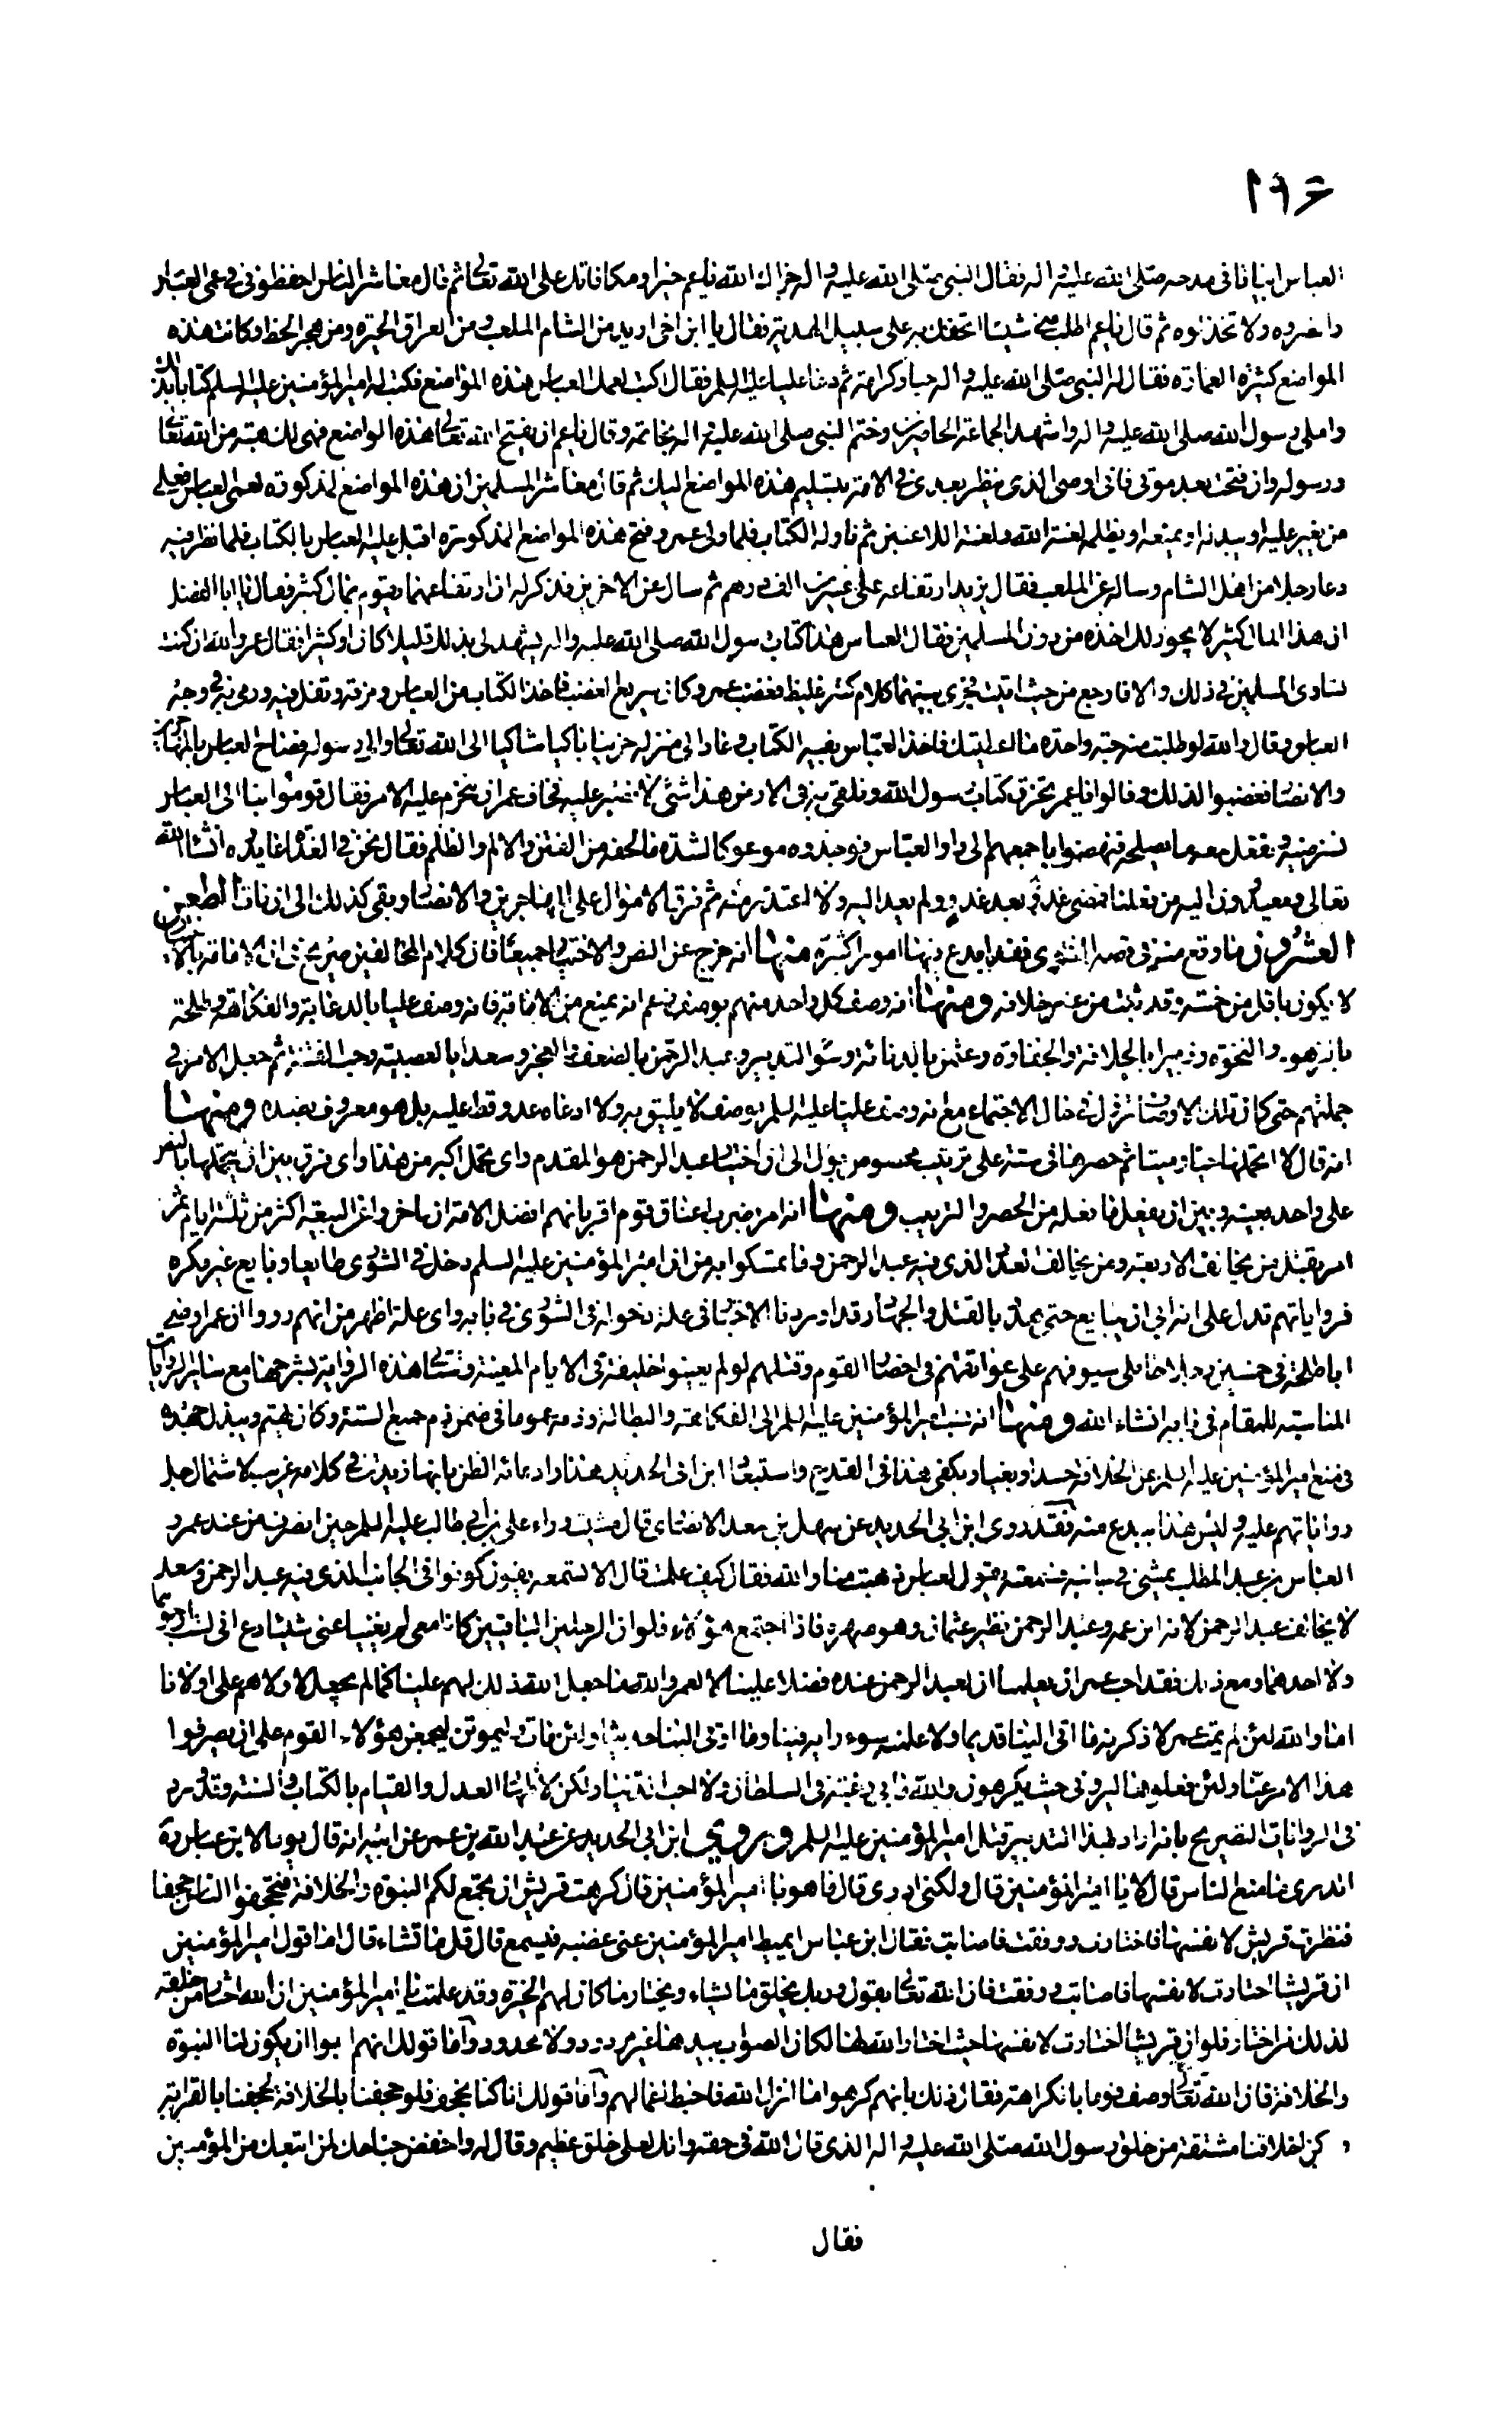 ١٩۶
العباس ابياتا فى مدحه صلى الله عليه و اله فقال النبى صلى الله عليه و اله جزاك الله ياعم خيرا و مكافاتك على الله تعالى ثم قال معاشر الناس احفظونى فى عمى العباس
وانصروه ولا تخذلوه ثم قال ياعم اطلب منى شيئا اتحفك به على سبيل الهدية فقال يا ابن اخى اريد من الشام الملعب و من العراق الحيرة ومن هجر الخط وكانت هذه
المواضع كثيرة العمارة فقال له النبى صلى الله عليه و اله حبا وكرامة ثم دعا عليا عليه السلم فقال اكتب لعمك العباس هذه المواضع فكتب له امير المؤمنين عليه السلم كتابا بذلك
واملى رسول الله صلى الله عليه و اله واشهد الجماعة الحاضرين وختم النبى صلى الله عليه و اله بخاتمه وقال ياعم ان يفتح الله تعالى هذه المواضع فهى لك هبة من الله تعالى
ورسوله وان فتحت بعد موتى فانى اوصى الذى ينظر بعدى فى الامة بتسليم هذه المواضع اليك ثم قال معاشر المسلمين ان هذه المواضع المذكورة لعمى العباس فعلى
من يغير عليه او يبدله او يمنعه او يظلمه لعنة الله ولعنة اللاعنين ثم ناوله الكتاب فلما ولى عمر و فتح هذه المواضع المذكورة اقبل عليه العباس بالكتاب فلما نظر فيه
دعا رجلا من اهل الشام وساله عن الملعب فقال يزيد ارتفاعه على عشرين الف درهم ثم سال عن الاخرين فذكر له ان ارتفاعهما يقوم بمال كثير فقال يا ابا الفضل
ان هذا المال كثير لا يجوز لك اخذه من دون المسلمين فقال العباس هذا كتاب رسول الله صلى الله عليه واله يشهد لى بذلك قليلا كان او كثيرا فقال عمر والله ان كنت
تساوى المسلمين فى ذلك والا فارجع من حيث اتيت فجرى بينهما كلام كثير غليظ فغضب عمر و كان سريع الغضب فاخذ الكتاب من العباس و مزقه و تفل فيه و رمى به فى وجه
العباس و قال والله لو طلبت منه حبة واحدة ما اعطيتك فاخذ العباس بقية الكتاب و عاد الى منزله حزينا باكيا شاكيا الى الله تعالى و الى رسوله فصاح العباس بالمهاجرين
والانصار فغضبوا لذلك و قالوا ياعمر تخرق كتاب رسول الله و تلقى به فى الارض هذا شئ لا نصبر عليه فخاف عمر ان ينخرم عليه الامر فقال قوموا بنا الى العباس
نسترضيه و نفعل معه ما يصلحه فنهضوا باجمعهم الى دار العباس فوجدوه موعوكا لشدة ما لحقه من الفتن و الالم والظلم فقال نحن فى الغداة عايدوه انشاء الله
تعالى ومعتذرون اليه من فعلنا فمضى غد و بعد غد و لم يعد اليه و لا اعتذر منه ثم فرق الاموال على المهاجرين و الانصار وبقى كذلك الى ان مات الطعن
العشرون ما وقع منه فى قصة الشورى فقد ابدع فيها امورا كثيرة منها انه خرج عن النص و الاختيار جميعا فان كلام المخالفين صريح فى ان الامامة بالاختيار
لا يكون باقل من خمسة وقد ثبت من عمر خلافه و منها انه وصف كل واحد منهم بوصف زعم انه يمنع من الامامة فانه وصف عليا بالدعابة والفكاهة و طلحة
بالزهو والنخوة و زبيرا بالجلافة والجفاوة و عثمن بالدناءة وسوء التدبير و عبد الرحمن بالضعف والعجز و سعدا بالعصبية و حب الفتنة ثم جعل الامر فى
جملتهم حتى كان تلك الاوصاف تزول فى حال الاجتماع مع انه وصف عليا عليه السلم بوصف لا يليق به ولا ادعاه عدو قط عليه بل هو معروف بضده و منها
انه قال لا اتحملها حيا و ميتا ثم حصرها فى ستة على ترتيب مخصوص يؤل الى ان اختيار عبد الرحمن هو المقدم واى تحمل اكبر من هذا و اى فرق بين ان يتحملها بالنص
على واحد بعينه و بين ان يفعل ما فعله من الحصر و الترتيب و منها انه امر بضرب اعناق قوم اقر بانهم افضل الامة ان تاخروا عن البيعة اكثر من ثلثة ايام ثم
امر بقتل من يخالف الاربعة ومن يخالف العدد الذى فيه عبد الرحمن و ما تمسكوا به من ان امير المؤمنين عليه السلم دخل فى الشورى طايعا و بايع غير مكره
فرواياتهم تدل على انه ابى ان يبايع حتى هدد بالقتل و الجهاد و قد اوردنا الاخبار فى علة دخوله فى الشورى فى بابه واى علة اظهر من انهم رووا ان عمر اوصى
ابا طلحة فى خمسين رجلا حاملى سيوفهم على عواتقهم فى احضار القوم وقتلهم لو لم يعينوا خليفة فى الايام المعينة و ستاتى هذه الرواية بشرحها مع سائر الروايات
المناسبة للمقام فى بابه انشاء الله و منها انه نسب امير المؤمنين عليه السلم الى الفكاهة و البطالة وذمه عموما فى ضمن ذم جميع الستة و كان يهتم و يبذل جهده
فى منع امير المؤمنين عليه السلم عن الخلافة حسدا و بغيا و يكفى هذا فى القدح و استبعد ابن ابى الحديد هذا و ادعائه الظن بانها زيدت فى كلامه غريب لاشتمال جل
رواياتهم عليه و ليس هذا ببدع منه فقد روى ابن ابى الحديد عن سهل بن سعد الانصارى قال مشيت وراء على بن ابى طالب عليه السلم حين انصرف من عند عمر و
العباس بن عبد المطلب يمشى فى جانبه فسمعته يقول للعباس ذهبت منا والله فقال كيف علمت قال الا تسمعه يقول كونوا فى الجانب الذى فيه عبد الرحمن و سعد
لا يخالف عبد الرحمن لانه ابن عمه و عبد الرحمن نظير عثمان وهو صهره فاذا اجتمع هؤلاء فلو ان الرجلين الباقيين كانا معى لم يغنيا عنى شيئا دع انى لست ارجوهما
ولا احدهما و مع ذلك فقد احب عمر ان يعلمنا ان لعبد الرحمن عنده فضلا علينا لا لعمر والله ما جعل الله ذلك لهم علينا كما لم يجعل لاولاهم على اولانا
اما والله لئن لم يمت عمر لاذكرنه ما اتى الينا قديما ولا علمنه سوء رايه فينا وما اتى الينا حديثا ولئن مات و ليموتن ليجمعن هؤلاء القوم على ان يصرفوا
هذا الامر عنا ولئن فعلوها ليرونى حيث يكرهون والله ما بى رغبة فى السلطان ولا احب الدنيا ولكن لاظهار العدل والقيام بالكتاب و السنة وقد ورد
فى الروايات التصريح بانه اراد بهذا التدبير قتل امير المؤمنين عليه السلم و روى ابن ابى الحديد عن عبد الله بن عمر عن ابيه انه قال يوما لابن عباس
اتدرى ما منع الناس قال لا يا امير المؤمنين قال ولكنى ادرى قال ما هو يا امير المؤمنين قال كرهت قريش ان يجتمع لكم النبوة و الخلافة فتجحفوا الناس جحفا
فنظرت قريش لانفسها فاختارت و وفقت فاصابت فقال ابن عباس ايميط امير المؤمنين عنى غضبه فيسمع قال قل ما تشاء قال اما قول امير المؤمنين
ان قريشا اختارت لانفسها فاصابت و وفقت فان الله تعالى يقول وربك يخلق ما يشاء ويختار ما كان لهم الخيرة وقد علمت يا امير المؤمنين ان الله اختار من خلقه
لذلك من اختار فلو ان قريشا اختارت لانفسها حيث اختار الله لها لكان الصواب بيدها غير مردود ولا محدود و اما قولك انهم ابوا ان يكون لنا النبوة
والخلافة فان الله تعالى وصف قوما بالكراهة فقال ذلك بانهم كرهوا ما انزل الله فاحبط اعمالهم و اما قولك انا كنا نجحف فلو جحفنا بالخلافة لجحفنا بالقرابة
و لكن اخلاقنا مشتقة من خلق رسول الله صلى الله عليه و اله الذى قال الله فى حقه وانك لعلى خلق عظيم و قال له واخفض جناحك لمن اتبعك من المؤمنين
فقال